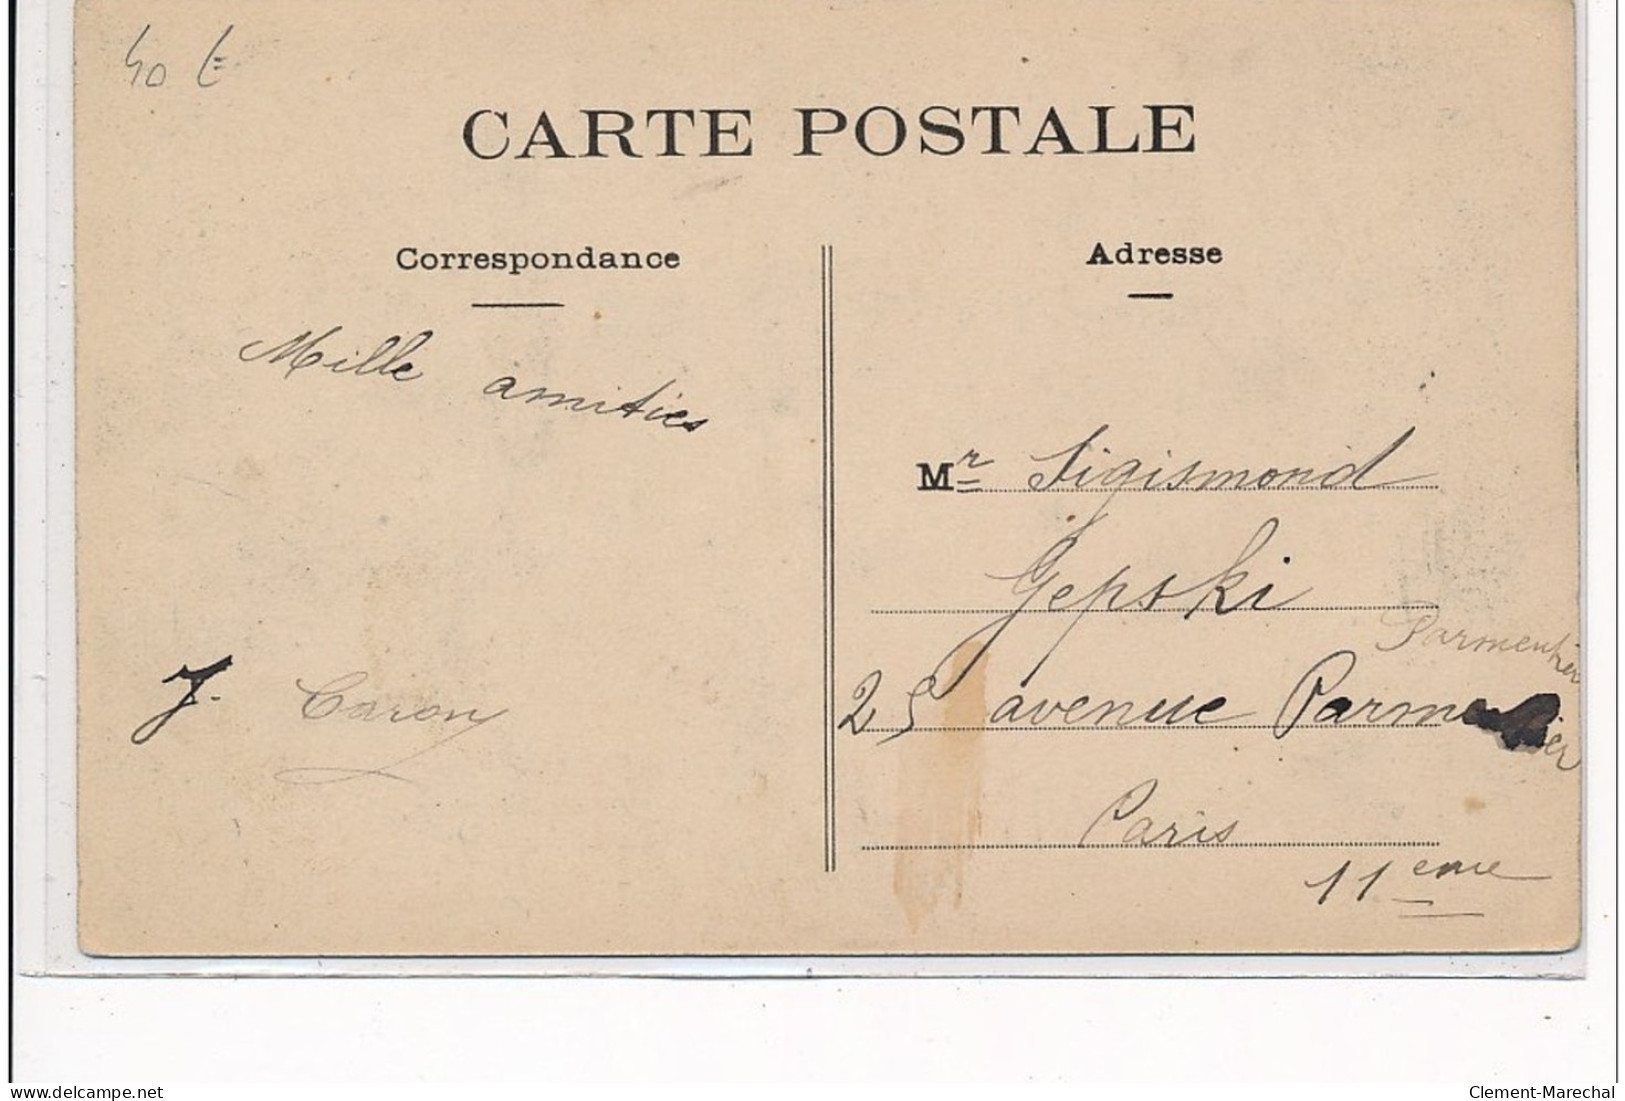 40 €
CARTE POSTALE
Correspondance
Mille amitiés
J. Caron
Adresse
Mr Sigismond
Gepski
Parmentier
25 avenue Parmentier
Paris
11eme
www.delcampe.net
Clement-Marechal